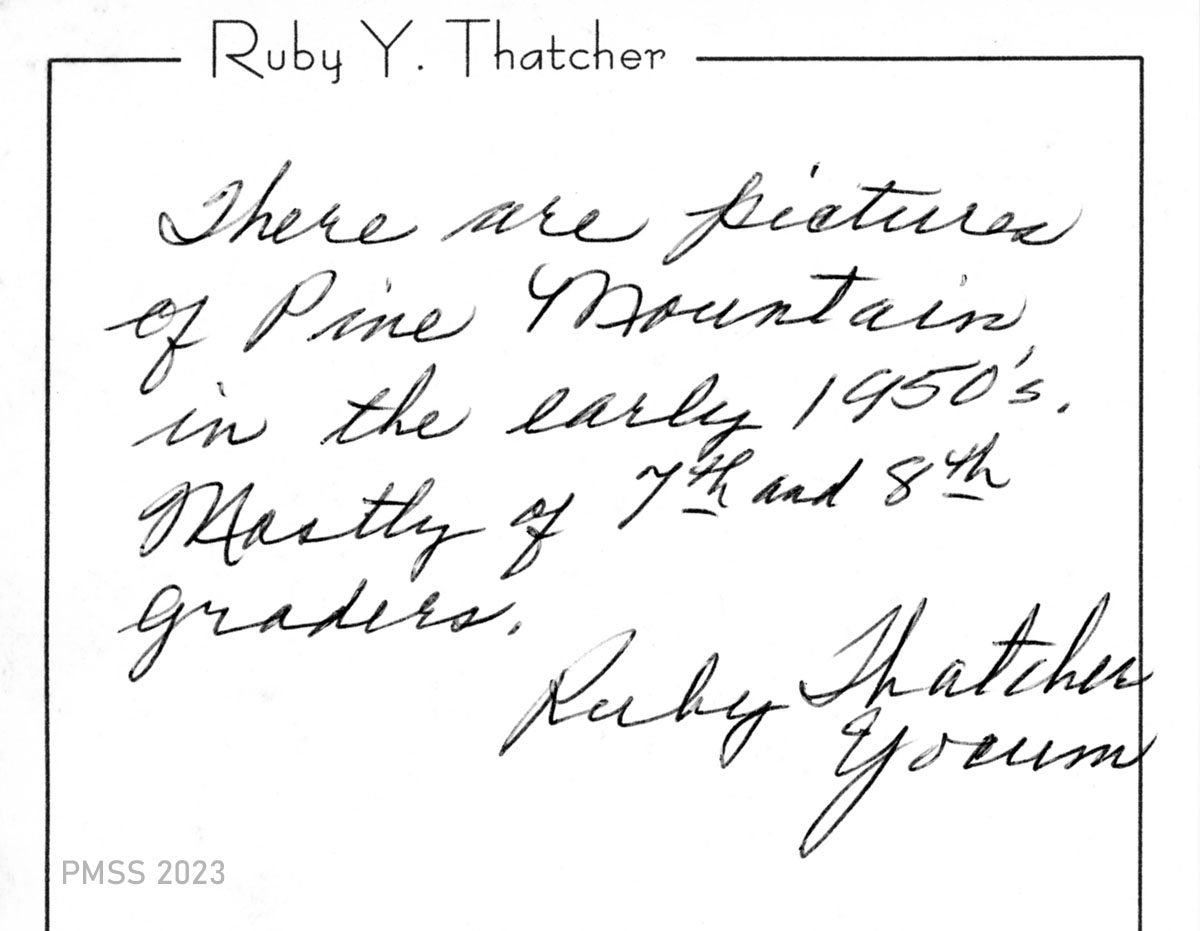 Ruby Y. Thatcher
There are pictures
of Pine Mountain
in the early 1950's.
Mostly of 7th and 8th
graders.
Ruby Thatcher
Yocum
PMSS 2023